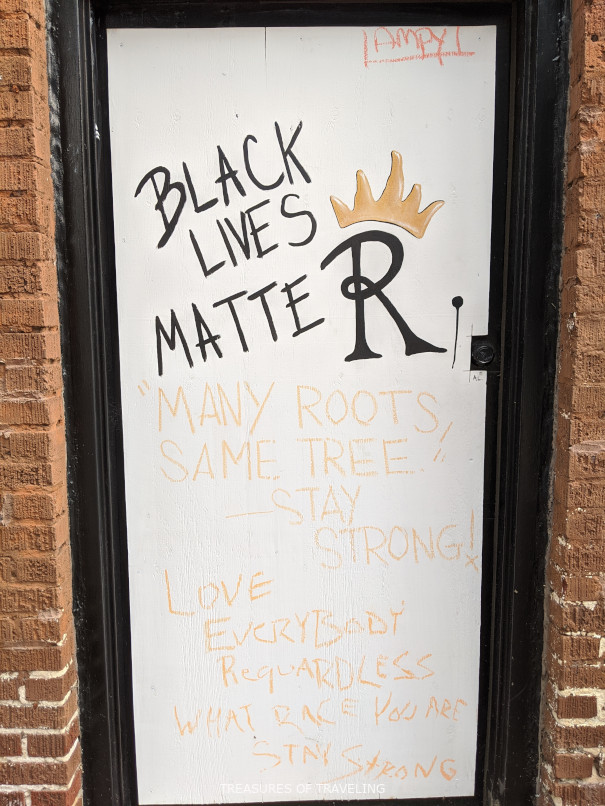 [AMPY]
BLACK
LIVES
MATTER
"MANY ROOTS,
SAME TREE."
—STAY
STRONG!
LOVE
EVERYBODY
ReguARDLESS
WHAT RACE YOU ARE
STAY STRONG
TREASURES OF TRAVELING